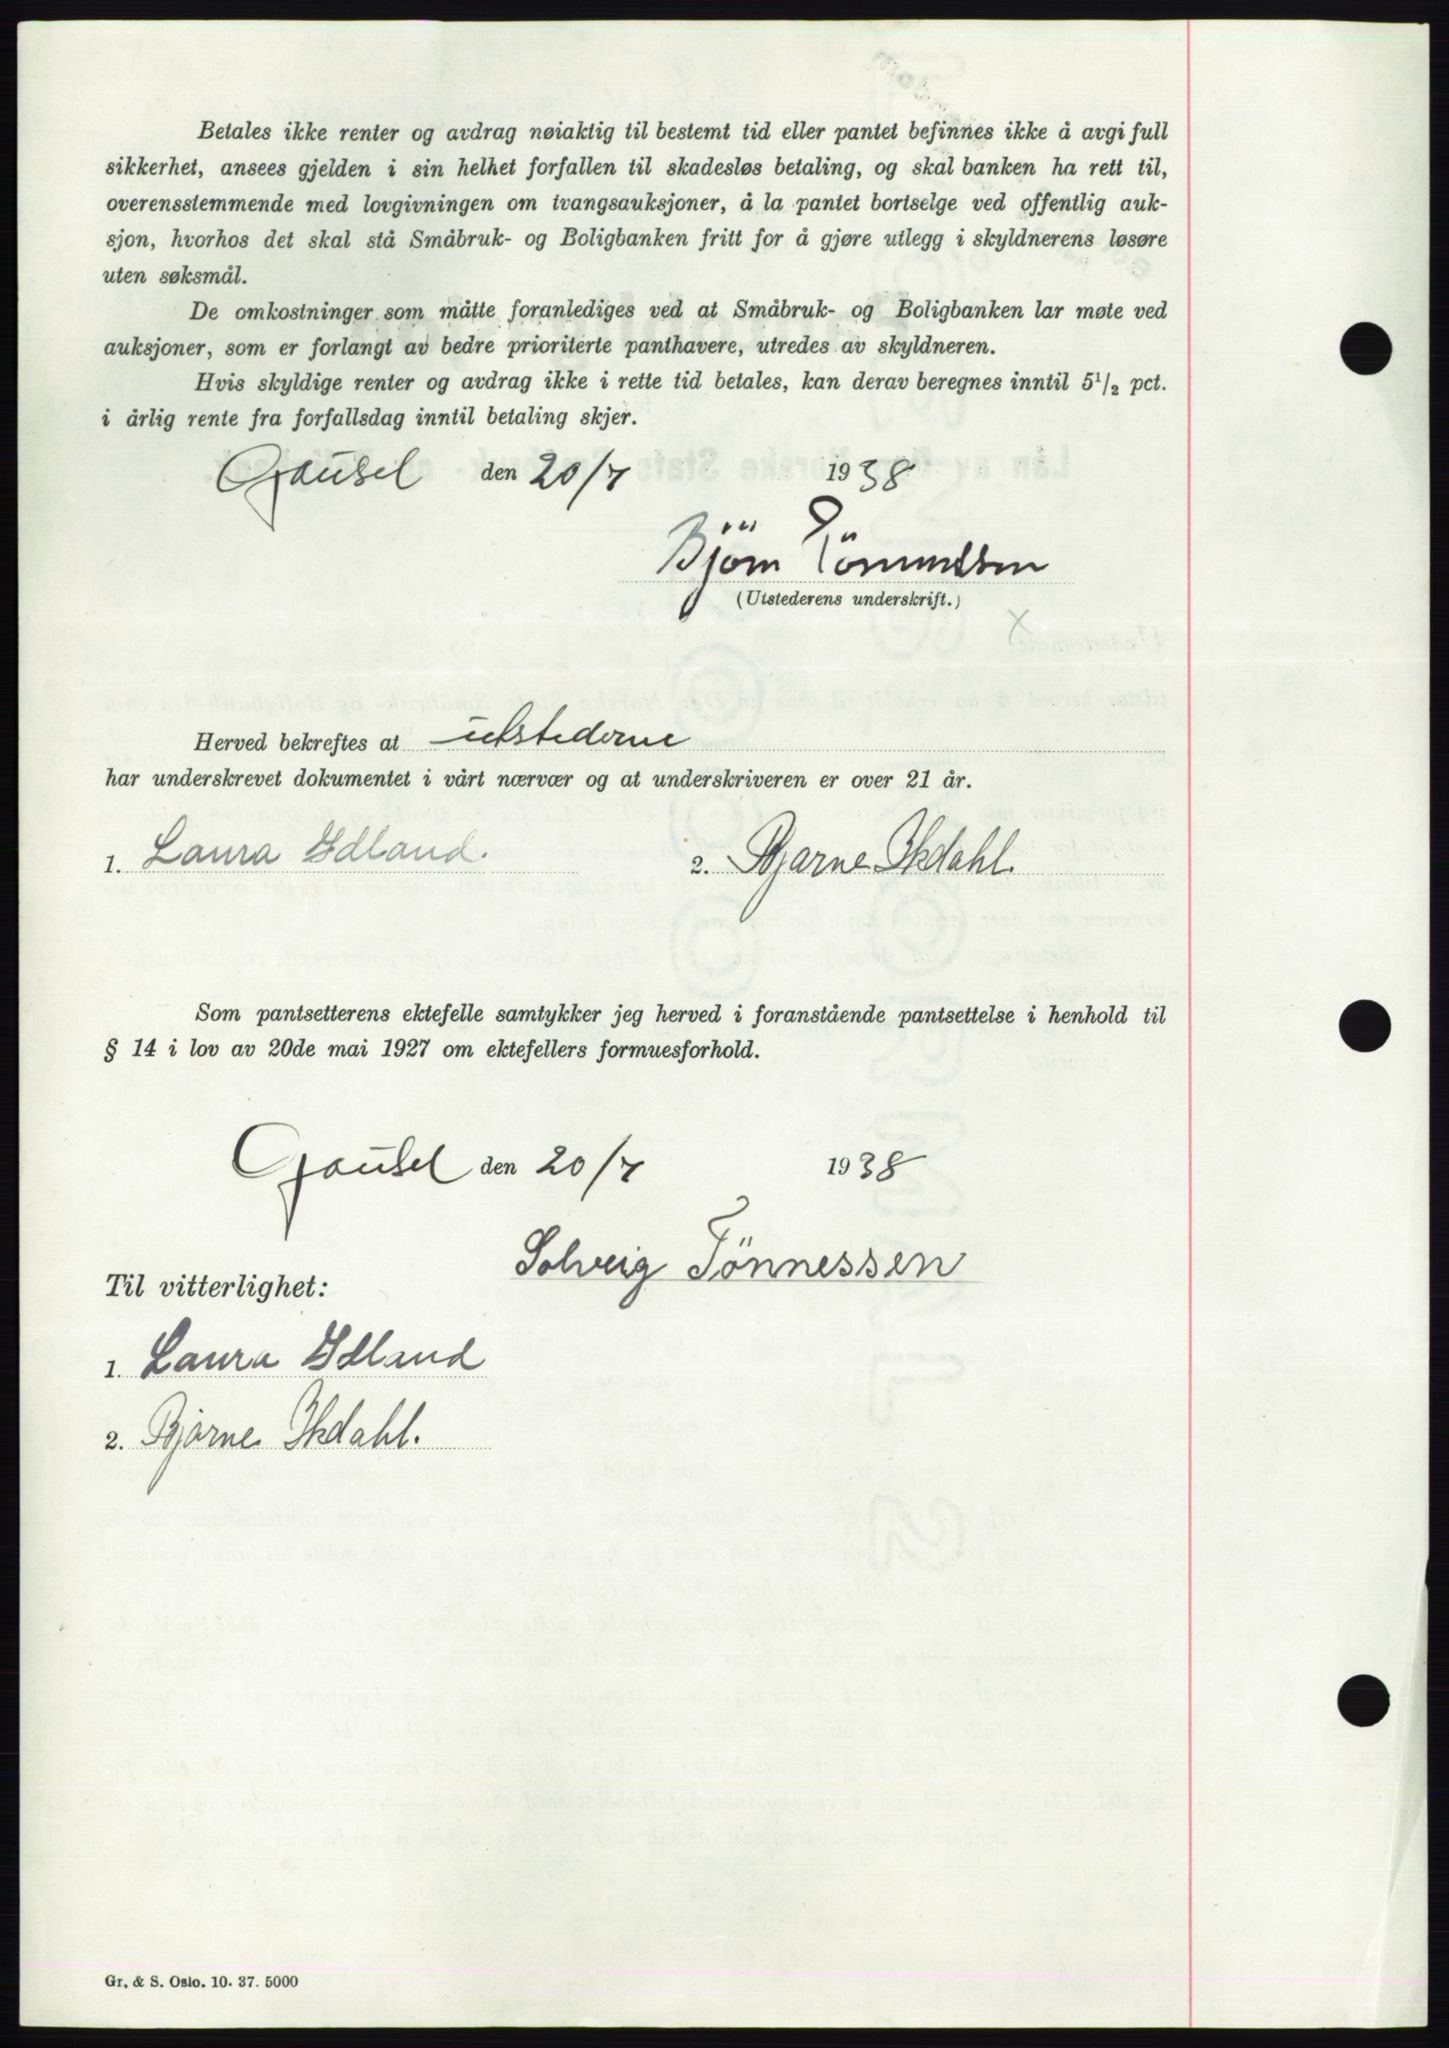 Betales ikke renter og avdrag nøiaktig til bestemt tid eller pantet befinnes ikke å avgi full
sikkerhet, ansees gjelden i sin helhet forfallen til skadesløs betaling, og skal banken ha rett til,
overensstemmende med lovgivningen om tvangsauksjoner, å la pantet bortselge ved offentlig auk-
sjon, hvorhos det skal stå Småbruk- og Boligbanken fritt for å gjøre utlegg i skyldnerens løsøre
uten søksmål.
De omkostninger som måtte foranlediges ved at Småbruk- og Boligbanken lar møte ved
auksjoner, som er forlangt av bedre prioriterte panthavere, utredes av skyldneren.
Hvis skyldige renter og avdrag ikke i rette tid betales, kan derav beregnes inntil 5 1/2 pct.
i årlig rente fra forfallsdag inntil betaling skjer.
Gausel den 20/7 1938
Björn
(Utstederens underskrift.)
Herved bekreftes at utstederne
har underskrevet dokumentet i vårt nærvær og at underskriveren er over 21 år.
1. Laura Idland. 2. Bjarne Ikdahl.
Som pantsetterens ektefelle samtykker jeg herved i foranstående pantsettelse i henhold til
§ 14 i lov av 20de mai 1927 om ektefellers formuesforhold.
Gausel den 20/7 1938
Solveig Tönnessen
Til vitterlighet:
1. Laura Idland
2. Bjarne Ikdahl.
Gr. & S. Oslo. 10. 37. 5000